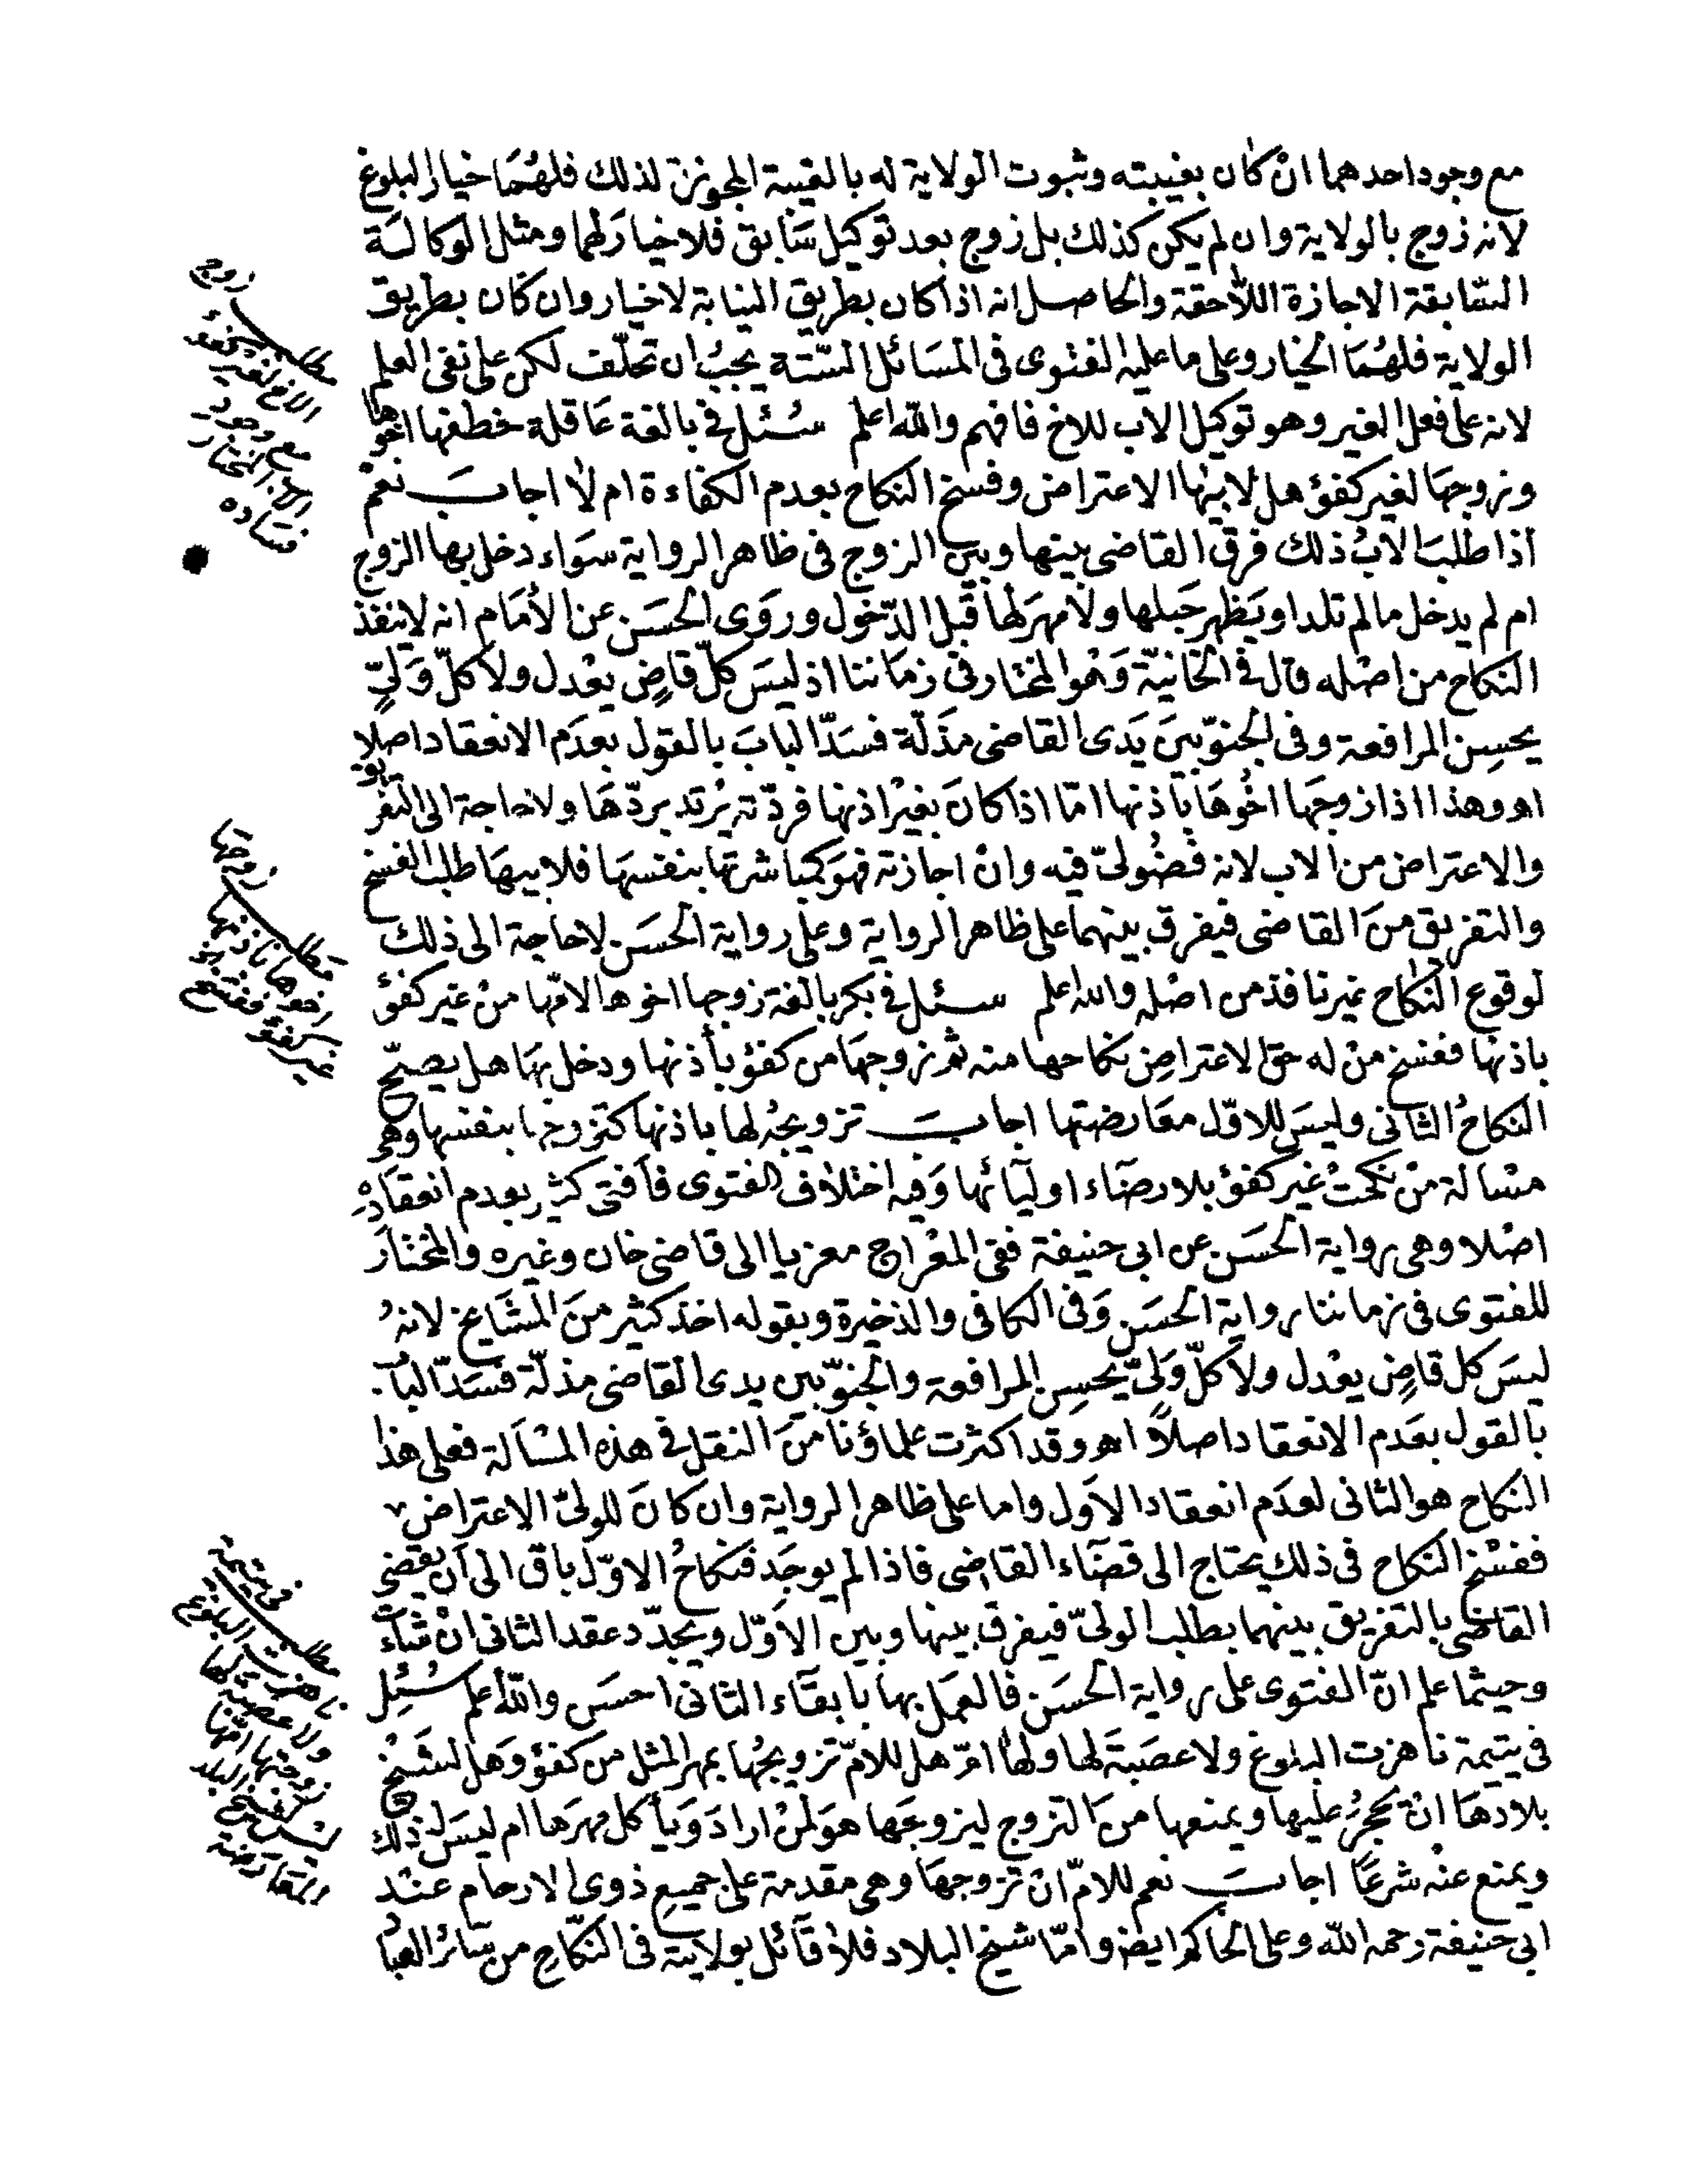 مع وجود احدهما انْ كان بغيبته وثبوت الولاية له بالغيبة المجوزة لذلك فلهُمَا خيار البلوغ
لانه زوج بالولاية وان لم يكن كذلك بل زوج بعد توكيل سَابق فلا خيارَ لهما ومثل الوكالة
السّابقة الاجازة اللاّحقة والحاصل انه اذا كان بطريق النيابة لا خيار وان كان بطريق
الولاية فلهُمَا الخيار وعلى ما عليه الفتوى فى المسَائل السّتة يجبُ ان تحلّف لكن على نفى العلم
لانه على فعل الغير وهو توكيل الاب للاخ فافهم والله اعلم سُئل فى بالغة عَاقلة خطفها اخوها
وزوجهَا لغير كفؤ هل لابيها الاعتراض وفسخ النكاح بعدم الكفاءة ام لا اجابَ نعمْ
اذا طلبَ الابُ ذلك فرق القاضى بينها وبين الزوج فى ظاهر الرواية سوَاء دخل بها الزوج
ام لم يدخل ما لم تلد او يَظهر حَبلها ولا مهرَ لها قَبل الدّخول وروَى الحسَن عن الأمَام انه لا ينفذ
النكاح من اصْله قال فى الخانيّة وَهُوَ المختار فى زمَاننا اذ ليسَ كلّ قاضٍ يعْدل ولا كلّ وَلىّ
يحسِن المرافعة وفى الجنوّ بينَ يَدَى القاضى مذَلّة فسَدّ البابَ بالقول بعدَم الانعقاد اصلا
اه وهذا اذا زوجَها اخُوهَا باذنها امّا اذا كانَ بغيْر اذنها فردّته يرْتد بردّهَا ولا حاجة الى التفريق
والاعتراض من الاب لانه فضُولىّ فيه وانْ اجازته فهوَ كمباشرتها بنفسهَا فلابيهَا طلب الفسخ
والتفريق منَ القاضى فيفرق بينهما على ظاهر الرواية وعلى رواية الحسَن لا حاجة الى ذلك
لوقوع النكاح غير نافذ من اصْله والله اعلم سئل فى بكر بالغة زوجها اخوها لامّها منْ غير كفؤ
باذنها ففسخ منْ له حق الاعتراض نكاحها منه ثم زوجهَا من كفؤ بأذنها ودخل بهَا هل يصحّ
النكاحُ الثانى وليسَ للاوّل معَارضتها اجابَ تزويجُه لها باذنها كتزوجها بنفسها وهى
مسْالة منْ نكحتْ غير كفؤ بلا رضآء اوليَائها وَفيه اختلاف الفتوى فأفتى كثير بعدم انعقادهْ
اصْلا وهى رواية الحَسَن عن ابى حنيفة ففى المعْراج معزيا الى قاضى خان وغيره والمختارَ
للفتوى فى زماننا رواية الحَسَن وَفى الكافى والذخيرة وبقوله اخذ كثير منَ المشَايخ لانهُ
ليسَ كل قاضٍ يعْدل ولا كلّ وَلىّ يحسِن المرافعة والجنوّ بين يدى القاضى مذلّة فسَدّ الباب
بالقول بعَدم الانعقاد اصلاً اه وقد اكثرت علماؤنا منَ النقل فى هذه المسْألة فعلى هذا
النكاح هو الثانى لعدَم انعقاد الاَول واما على ظاهر الرواية وان كانَ للولىّ الاعتراض
ففسْخ النكاح فى ذلك يحتاج الى قضَآء القاضى فاذا لم يوجَد فنكاحُ الاوّل باق الى انْ يقضى
القاضى بالتفريق بينهما بطلب الولىّ فيفرق بينها وبين الاَوّل ويجدّد عقد الثانى انْ شَاءَتْ
وحيثما علم انّ الفتوى على رواية الحسَن فالعمَل بها بابقآء الثانى احسَن والله اعلم سُئل
فى يتيمة ناهزت البلوغ ولا عصَبَة لها ولها امّ هل للامّ تزويجُها بمهر المثل من كفؤ وَهل لشَيْخ
بلادهَا انْ يحجرُ عليها ويمنعها منَ التزوج ليزوجَها هوَ لمنْ ارادَ وَيأكل مهرَها ام ليسَ له ذلك
ويمنع عنْه شرعًا اجابَ نعم للامّ انْ تزوجهَا وهى مقدمة على جميعِ ذوى الارحام عنْد
ابى حنيفة رحمه الله وعلى الحاكم ايضا وامّا شيخ البلاد فلا قائل بولايته فى النكاح من سَائر العبا
زوج
مطلب
الاخ لغير كفؤ
مع وجود
الاب المختار
فسَاده
زوجها
مطلب
اخوها باذنها
غير كفؤ ففسخ
فى يتيمة
مطلب
ناهزت البلوغ
ولا عصبة لها
زوجتها امّها
ليسَ لشيخ البلد
المعَارضة